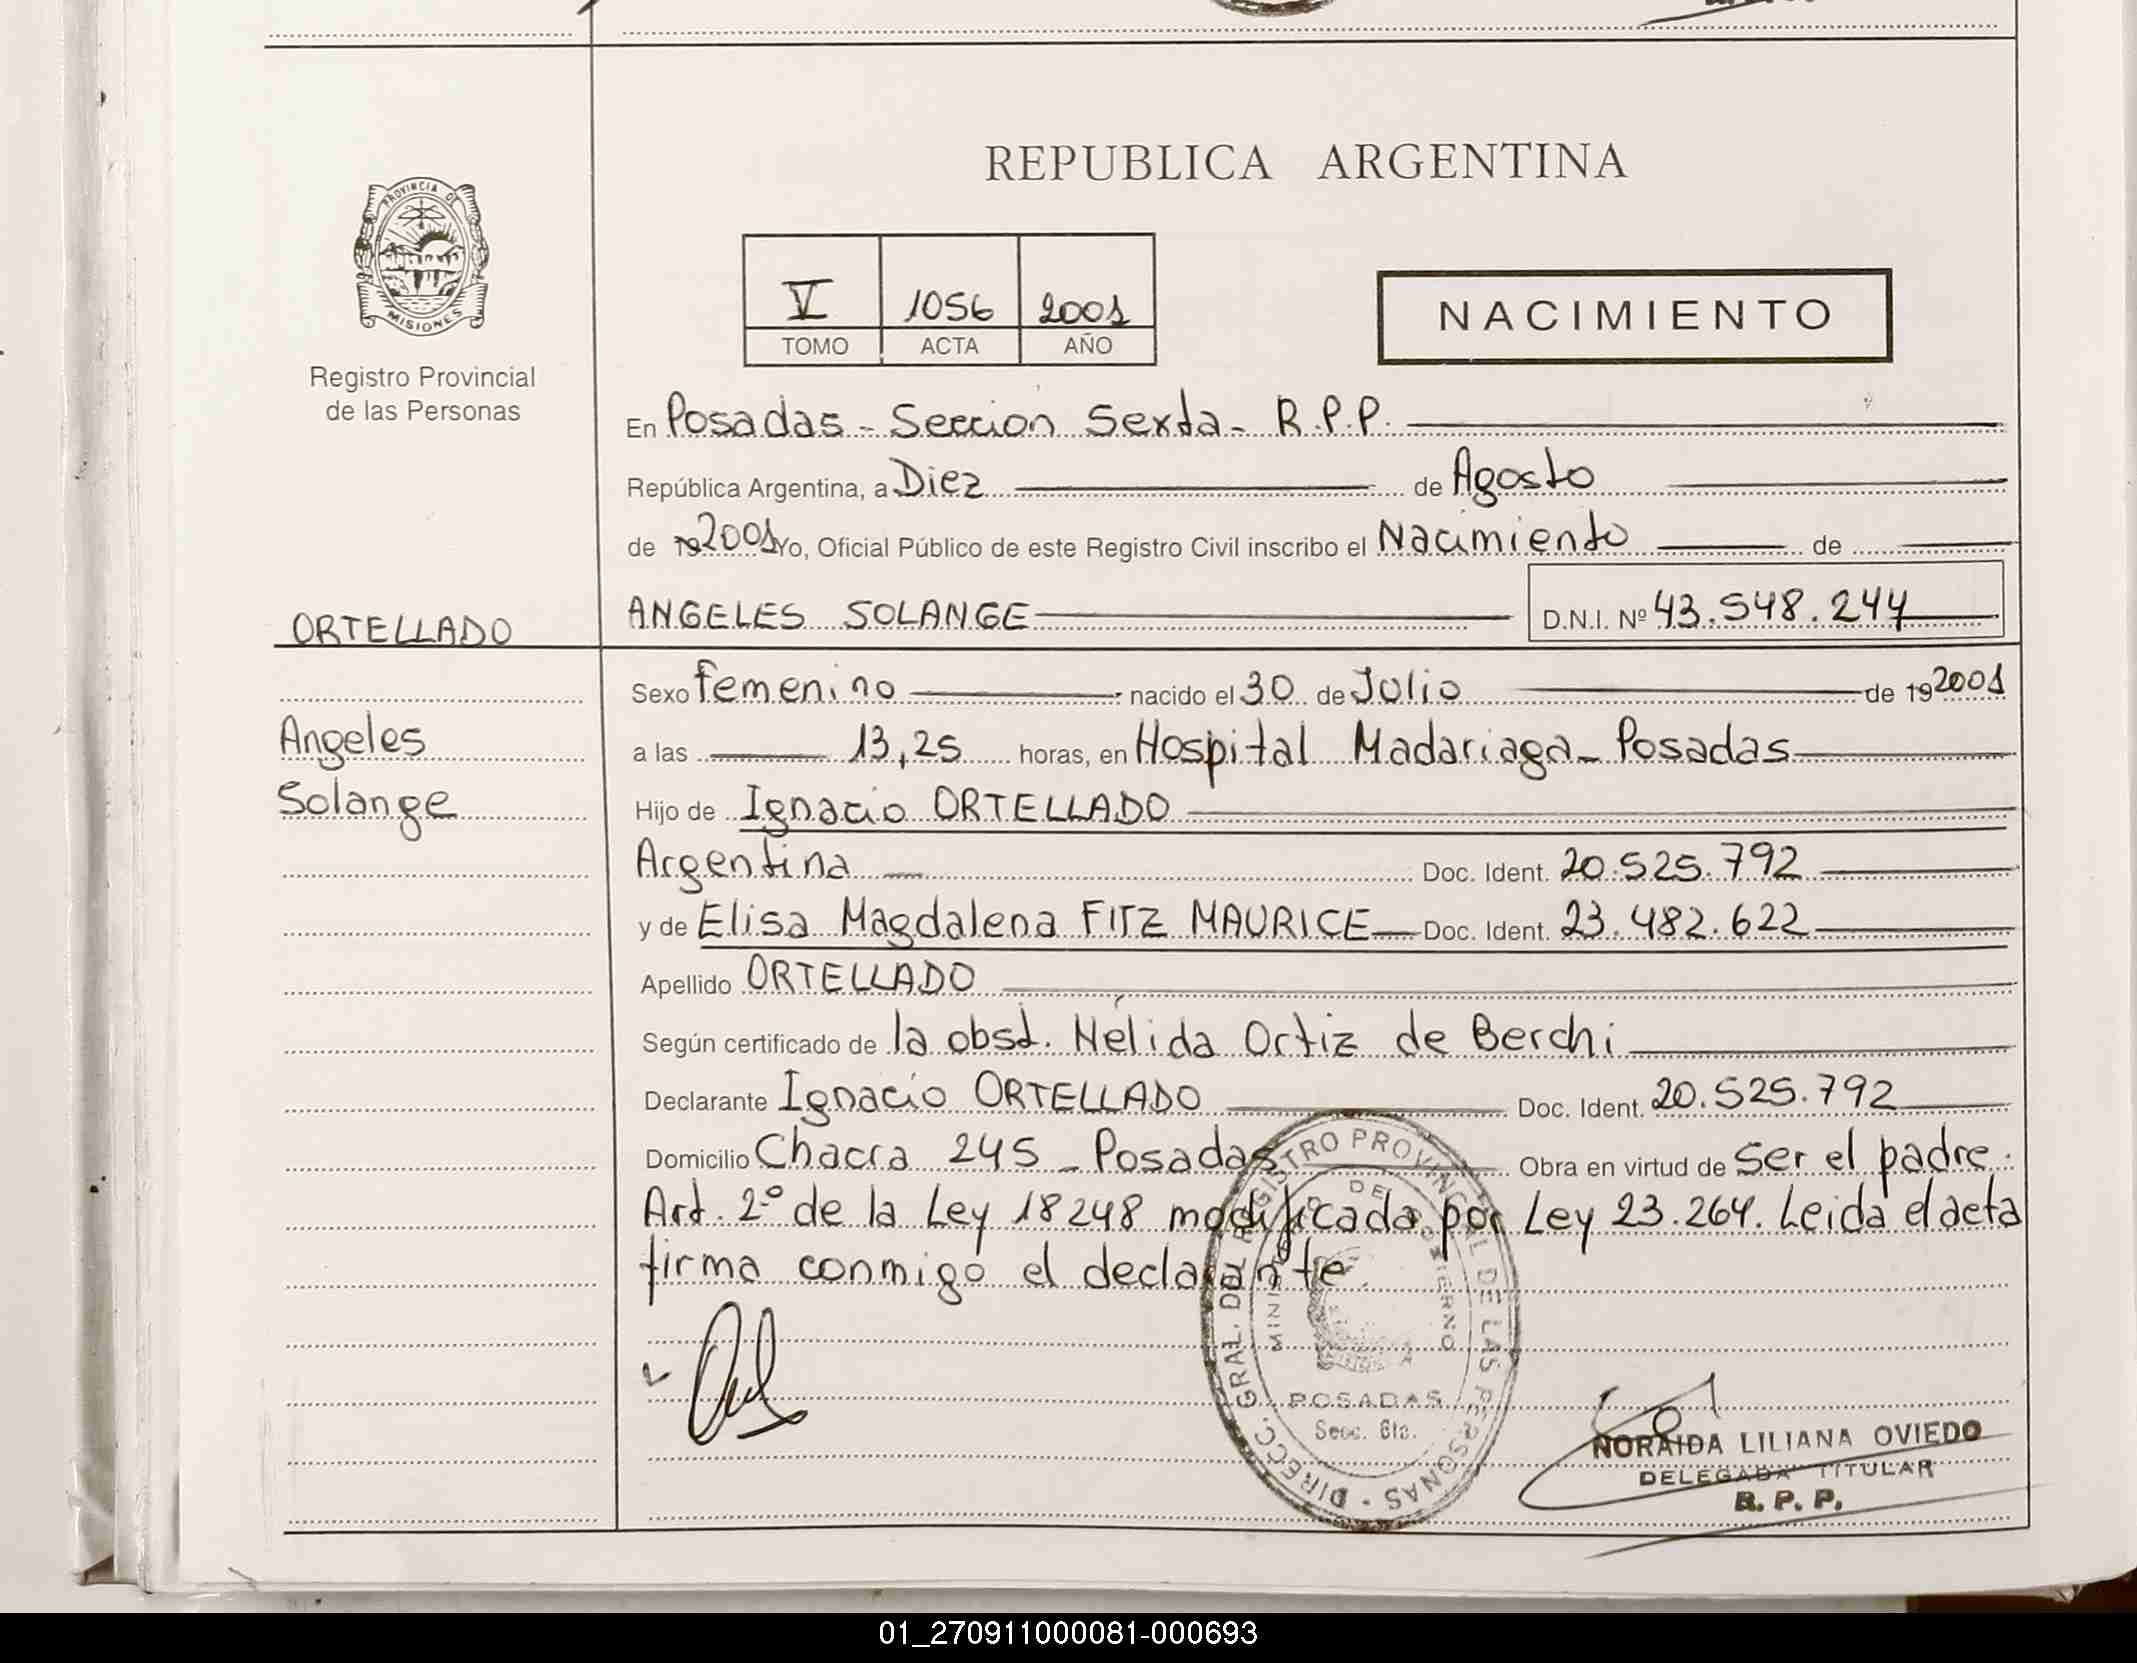 REPUBLICA ARGENTINA
PROVINCIA DE
MISIONES
Registro Provincial
de las Personas
V 1056 2001
TOMO ACTA AÑO
NACIMIENTO
En Posadas - Seccion Sexta - R.P.P.
República Argentina, a Diez de Agosto
de 19 2001 Yo, Oficial Público de este Registro Civil inscribo el Nacimiento de
ORTELLADO
ANGELES SOLANGE D.N.I. Nº 43.548.244
Sexo femenino nacido el 30 de Julio de 19 2001
Angeles
a las 13,25 horas, en Hospital Madariaga - Posadas
Solange
Hijo de Ignacio ORTELLADO
Argentina Doc. Ident. 20.525.792
y de Elisa Magdalena FITZ MAURICE Doc. Ident. 23.482.622
Apellido ORTELLADO
Según certificado de la obst. Nélida Ortiz de Berchi
Declarante Ignacio ORTELLADO Doc. Ident. 20.525.792
Domicilio Chacra 245 - Posadas Obra en virtud de ser el padre.
Art. 2º de la Ley 18248 modificada por Ley 23.264. Leida el acta
firma conmigo el declarante.
DIRECC. GRAL. DEL REGISTRO PROVINCIAL DE LAS PERSONAS
MINISTERIO DE GOBIERNO
POSADAS
Secc. 6ta.
NORAIDA LILIANA OVIEDO
DELEGADA TITULAR
R. P. P.
01_270911000081-000693